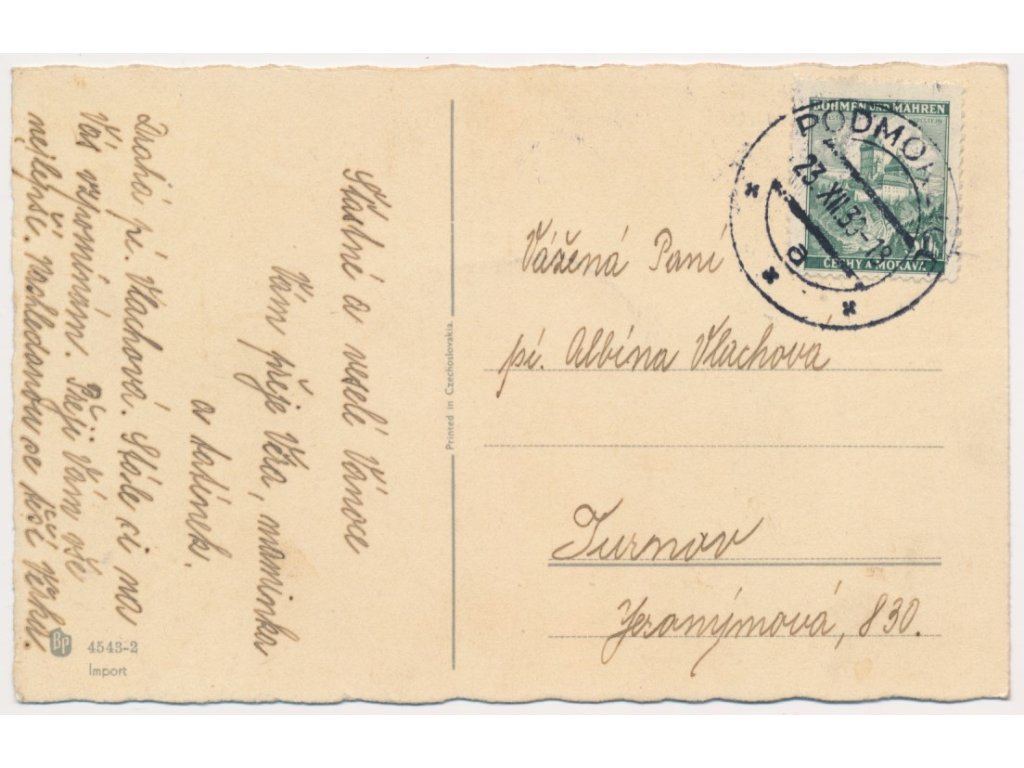 Šťastné a veselé Vánoce
Vám přeje Věra, maminka
a tatínek.
Drahá pí. Vlachová. Stále si na
Vás vzpomínám. Přeji Vám vše
nejlepší. Nashledanou se těší Věrka.
BP
4543-2
Import
Printed in Czechoslovakia
BÖHMEN UND MÄHREN
ČECHY A MORAVA
PODMOK
23. XII. 39-18
a
Vážená Paní
pí. Albína Vlachová
Turnov
Jeronýmová, 830.